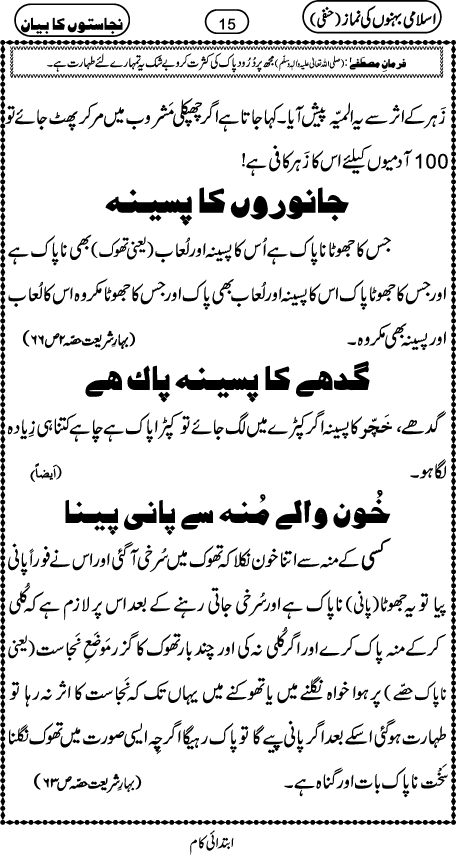 اسلامی بہنوں کی نماز (حنفی)
15
نجاستوں کا بیان
فرمانِ مصطَفٰے : (صلی اللہ تعالیٰ علیہ واٰلہٖ وسلّم) مجھ پر دُرُود پاک کی کثرت کرو بے شک یہ تمہارے لئے طہارت ہے۔
زَہر کے اثر سے یہ المیّہ پیش آیا۔ کہا جاتا ہے اگر چھپکلی مَشروب میں مر کر پھٹ جائے تو
100 آدمیوں کیلئے اس کا زَہر کافی ہے!
جانوروں کا پسینہ
جس کا جھوٹا ناپاک ہے اُس کا پسینہ اور لُعاب (یعنی تھوک) بھی ناپاک ہے
اور جس کا جھوٹا پاک اس کا پسینہ اور لُعاب بھی پاک اور جس کا جھوٹا مکروہ اس کا لُعاب
اور پسینہ بھی مکروہ۔ (بہارِ شریعت حصّہ ۲ ص ۶۶)
گدھے کا پسینہ پاک ھے
گدھے، خَچّر کا پسینہ اگر کپڑے میں لگ جائے تو کپڑا پاک ہے چاہے کتنا ہی زیادہ
لگا ہو۔ (اَیضاً)
خُون والے مُنہ سے پانی پینا
کسی کے منہ سے اتنا خون نکلا کہ تھوک میں سُرخی آ گئی اور اس نے فوراً پانی
پیا تو یہ جھوٹا (پانی) ناپاک ہے اور سُرخی جاتی رہنے کے بعد اس پر لازم ہے کہ کُلی
کر کے منہ پاک کرے اور اگر کُلی نہ کی اور چند بار تھوک کا گزر مَوضَعِ نَجاست (یعنی
ناپاک حصّے) پر ہوا خواہ نگلنے میں یا تھوکنے میں یہاں تک کہ نَجاست کا اثر نہ رہا تو
طہارت ہو گئی اسکے بعد اگر پانی پیے گا تو پاک رہیگا اگرچِہ ایسی صورت میں تھوک نگلنا
سَخْت ناپاک بات اور گناہ ہے۔ (بہارِ شریعت حصّہ ص ۶۳)
ابتدائی کام